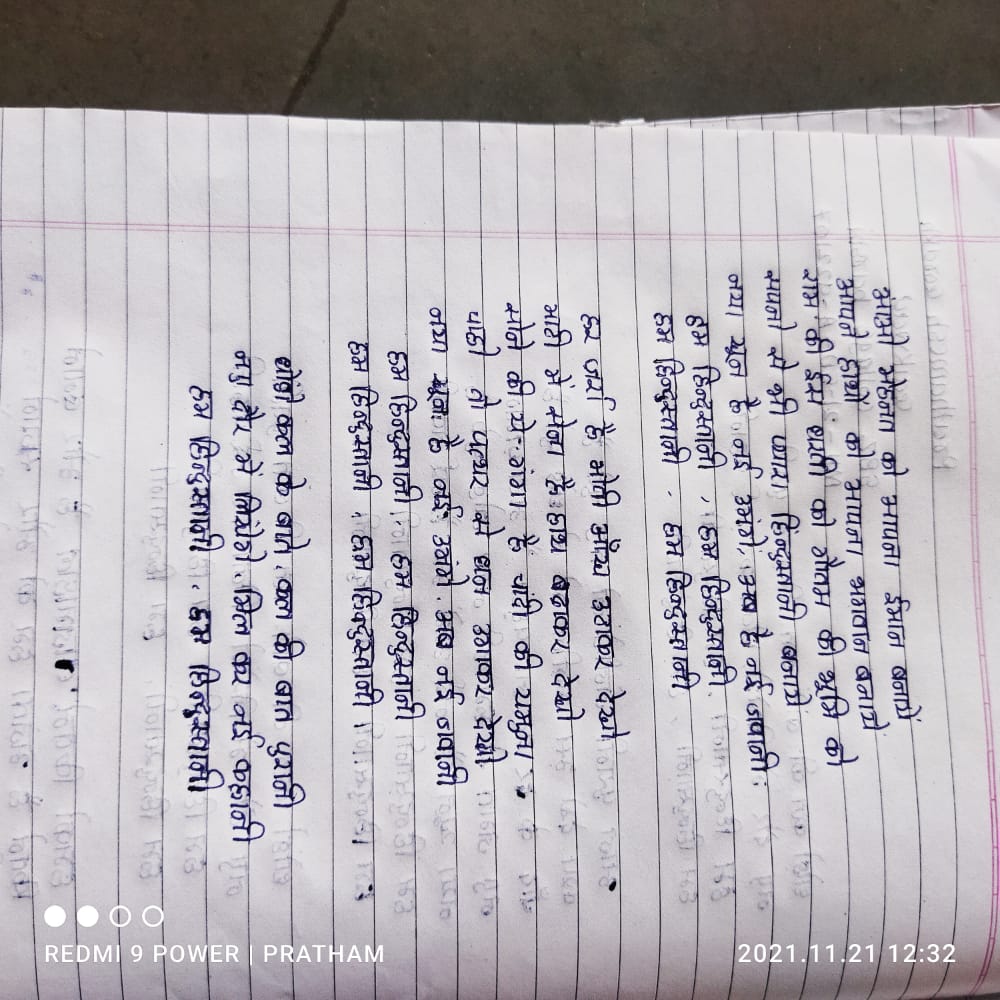 आओ मेहनत को अपना ईमान बनाये
अपने हाथो को अपना भगवान बनाये
राम की इस धरती को गौतम की भूमि को
सपनो से भी प्यारा हिंदुस्तानी बनाये
नया खून है नई उमंगे, अब है नई जवानी
हम हिन्दुस्तानी, हम हिन्दुस्तानी,
हम हिन्दुस्तानी, हम हिन्दुस्तानी
हर जर्रा है मोती आँख उठाकर देखो
माटी में सोना है हाथ बढाकर देखो
सोने की ये गंगा है चांदी की यमुना
चाहो तो पत्थर से धान उगाकर देखो
नया खून है नई उमंगे, अब नई जवानी
हम हिन्दुस्तानी, हम हिन्दुस्तानी
हम हिन्दुस्तानी, हम हिन्दुस्तानी।
छोडो कल के बाते, कल की बात पुरानी
नए दौर में लिखेंगे, मिल कर नई कहानी
हम हिन्दुस्तानी, हम हिन्दुस्तानी।
REDMI 9 POWER | PRATHAM
2021.11.21 12:32